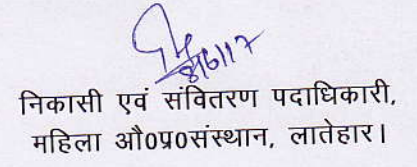 निकासी एवं संवितरण पदाधिकारी,
महिला औ०प्र०संस्थान, लातेहार।